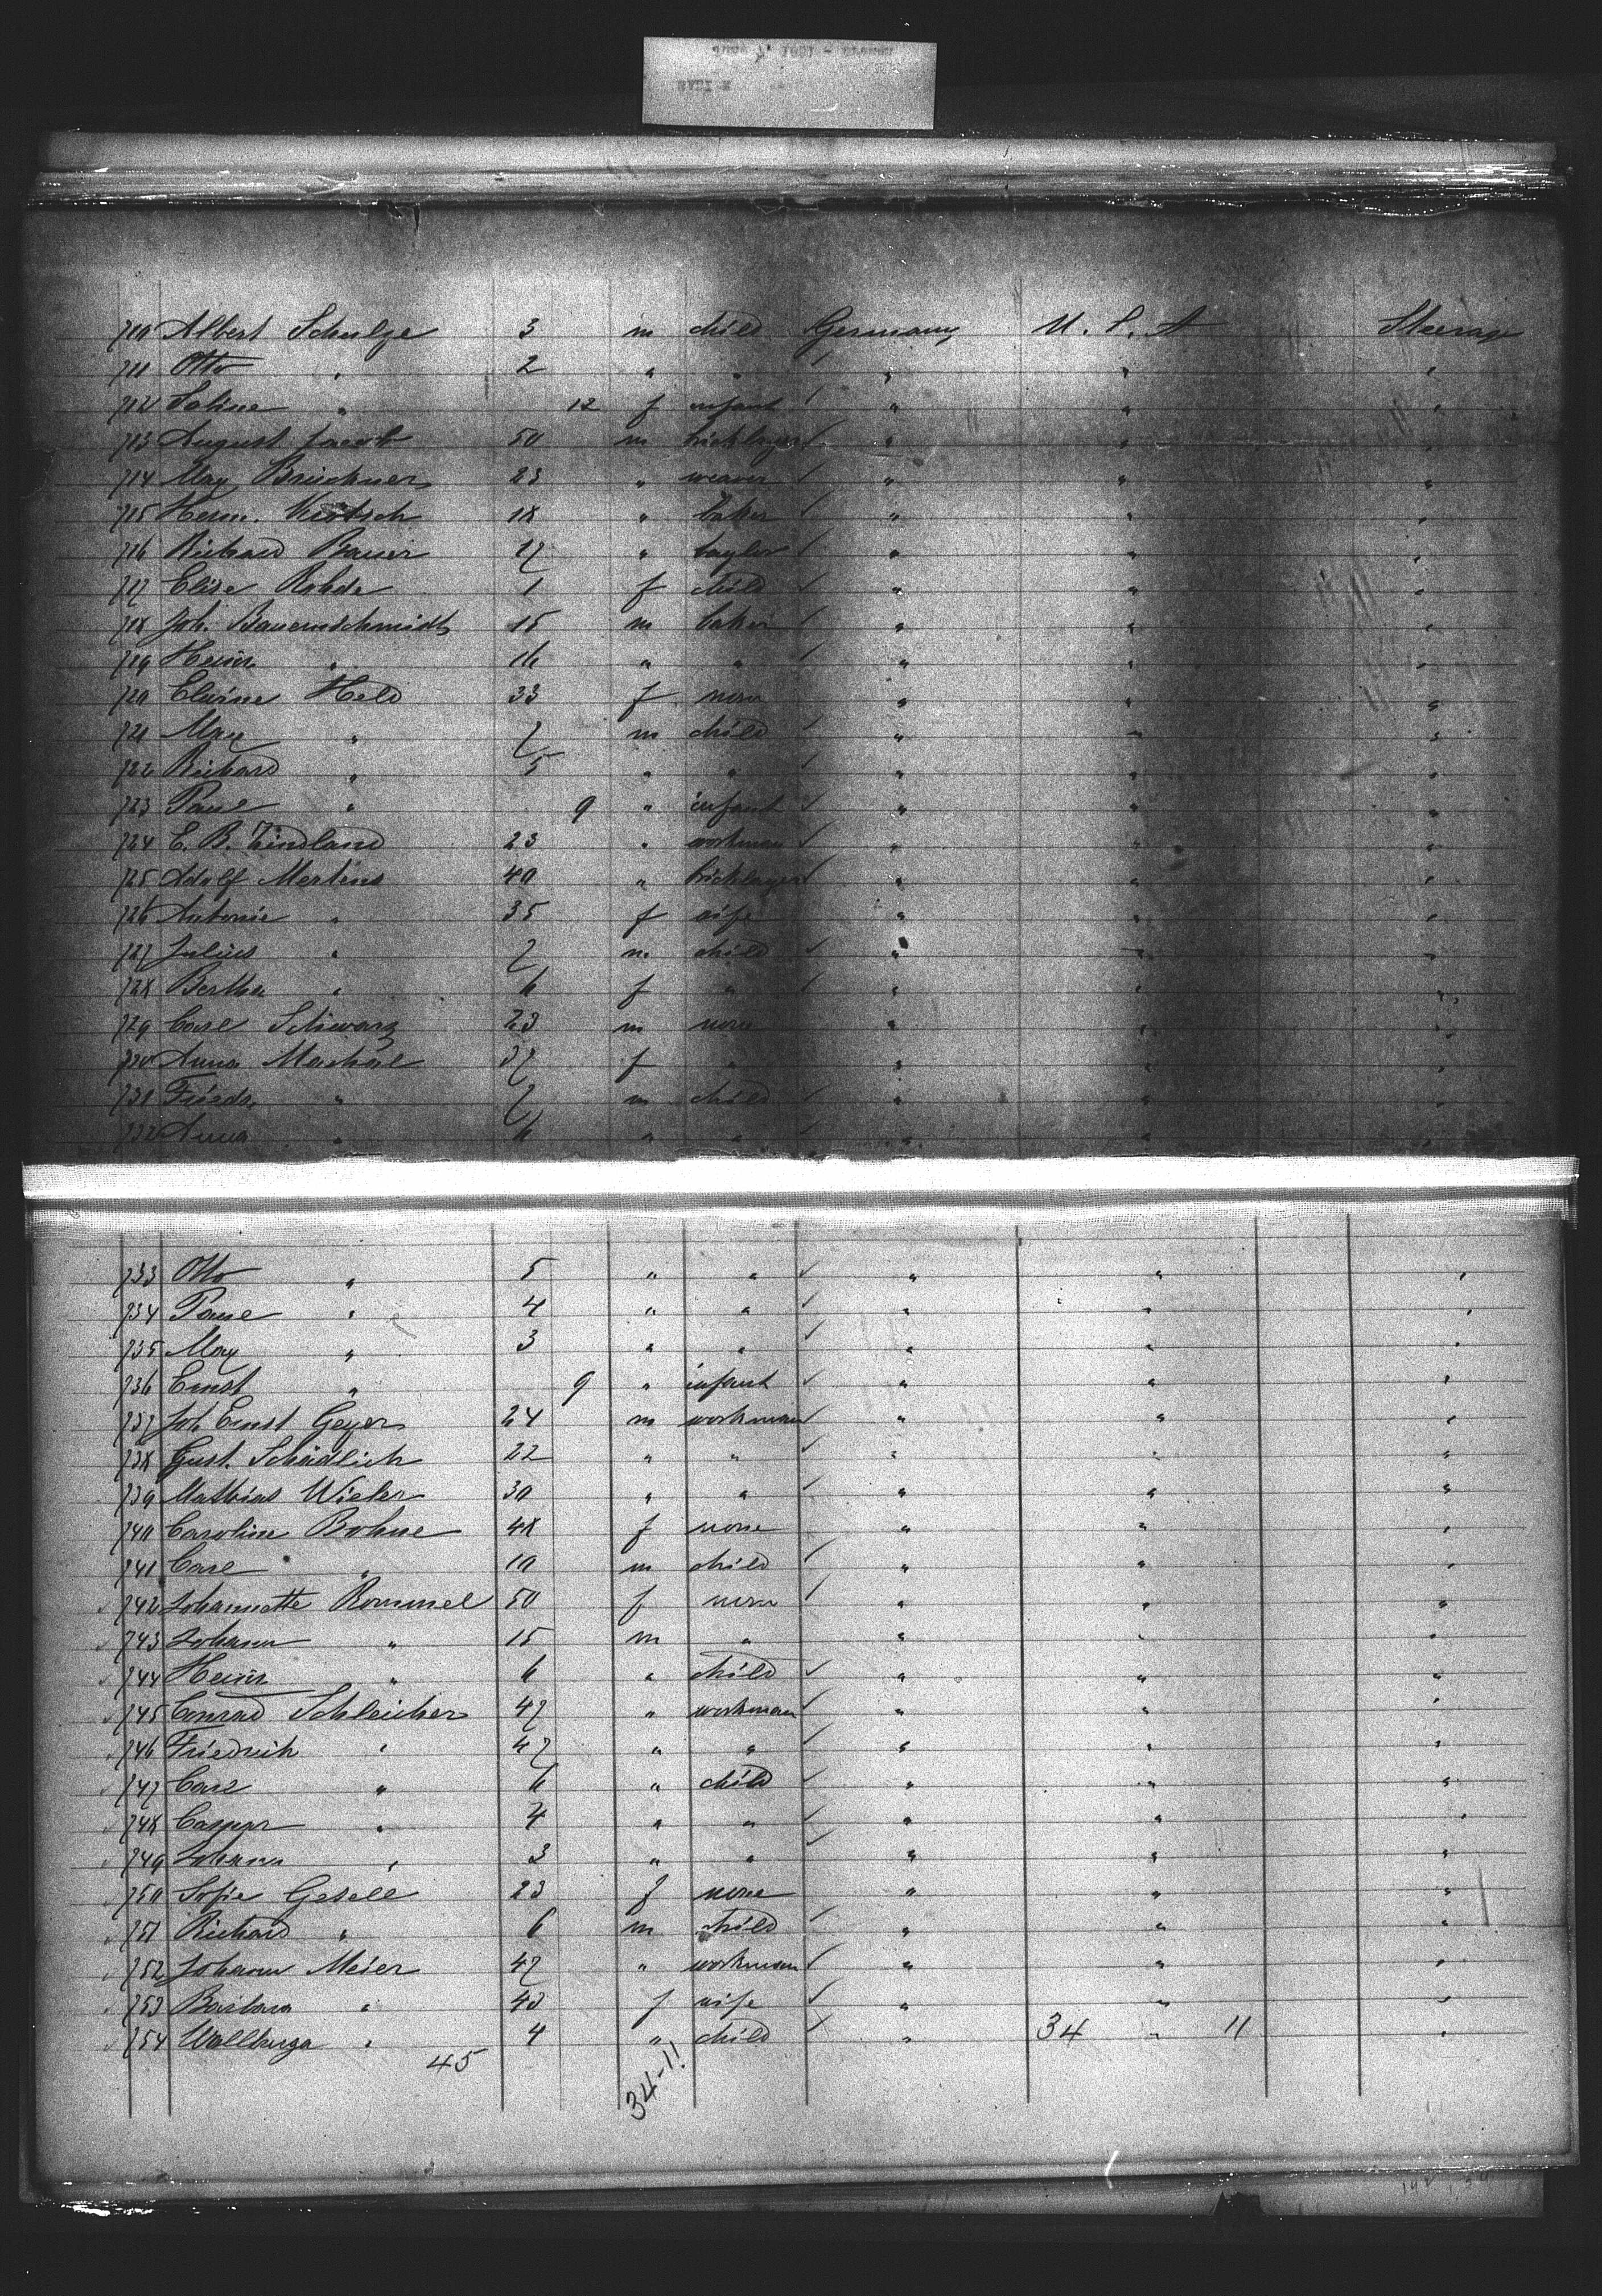 710 Albert Schulze 3 m child Germany U. S. A Steerage
711 Otto " 2 " " " " "
712 Saline " 12 f infant " " "
713 August Jacob 50 m bricklayer " " "
714 Max Brückner 23 " weaver " " "
715 Herm. 18 " baker " " "
716 Richard Bauer 17 " taylor " " "
717 Elise Rohde 1 f child " " "
718 Joh. Bauernschmidt 15 m baker " " "
719 Heinr. " 16 " " " " "
720 Elwine Held 33 f none " " "
721 Max " 7 m child " " "
722 Richard " 5 " " " " "
723 Paul " 9 " infant " " "
724 E. B. Zindland 23 " workman " " "
725 Adolf Mertins 40 " bricklayer " " "
726 Antonie " 35 f wife " " "
727 Julius " 7 m child " " "
728 Bertha " 6 f " " " "
729 Carl Schwarz 23 m none " " "
730 Anna Machal 37 f " " " "
731 Friedr. " 7 m child " " "
732 Anna " 6 " " " " "
733 Otto " 5 " " " " "
734 Paul " 4 " " " " "
735 Max " 3 " " " " "
736 Ernst " 9 " infant " " "
737 Joh. Ernst Geyer 24 m workman " " "
738 Gust. Schädlich 22 " " " " "
739 Mathias Wieler 30 " " " " "
740 Caroline Bohne 48 f none " " "
741 Carl " 10 m child " " "
742 Johannette Rommel 50 f none " " "
743 Johann " 15 m " " " "
744 Heinr. " 6 " child " " "
745 Conrad Schleicher 47 " workman " " "
746 Friedrich " 47 " " " " "
747 Carl " 6 " child " " "
748 Caspar " 4 " " " " "
749 Johann " 3 " " " " "
750 Sofie Gesell 23 f none " " "
751 Richard " 6 m child " " "
752 Johann Meier 47 " workman " " "
753 Barbara " 43 f wife " " "
754 Wallburga " 4 " child " 34 " 11 "
45 34-11